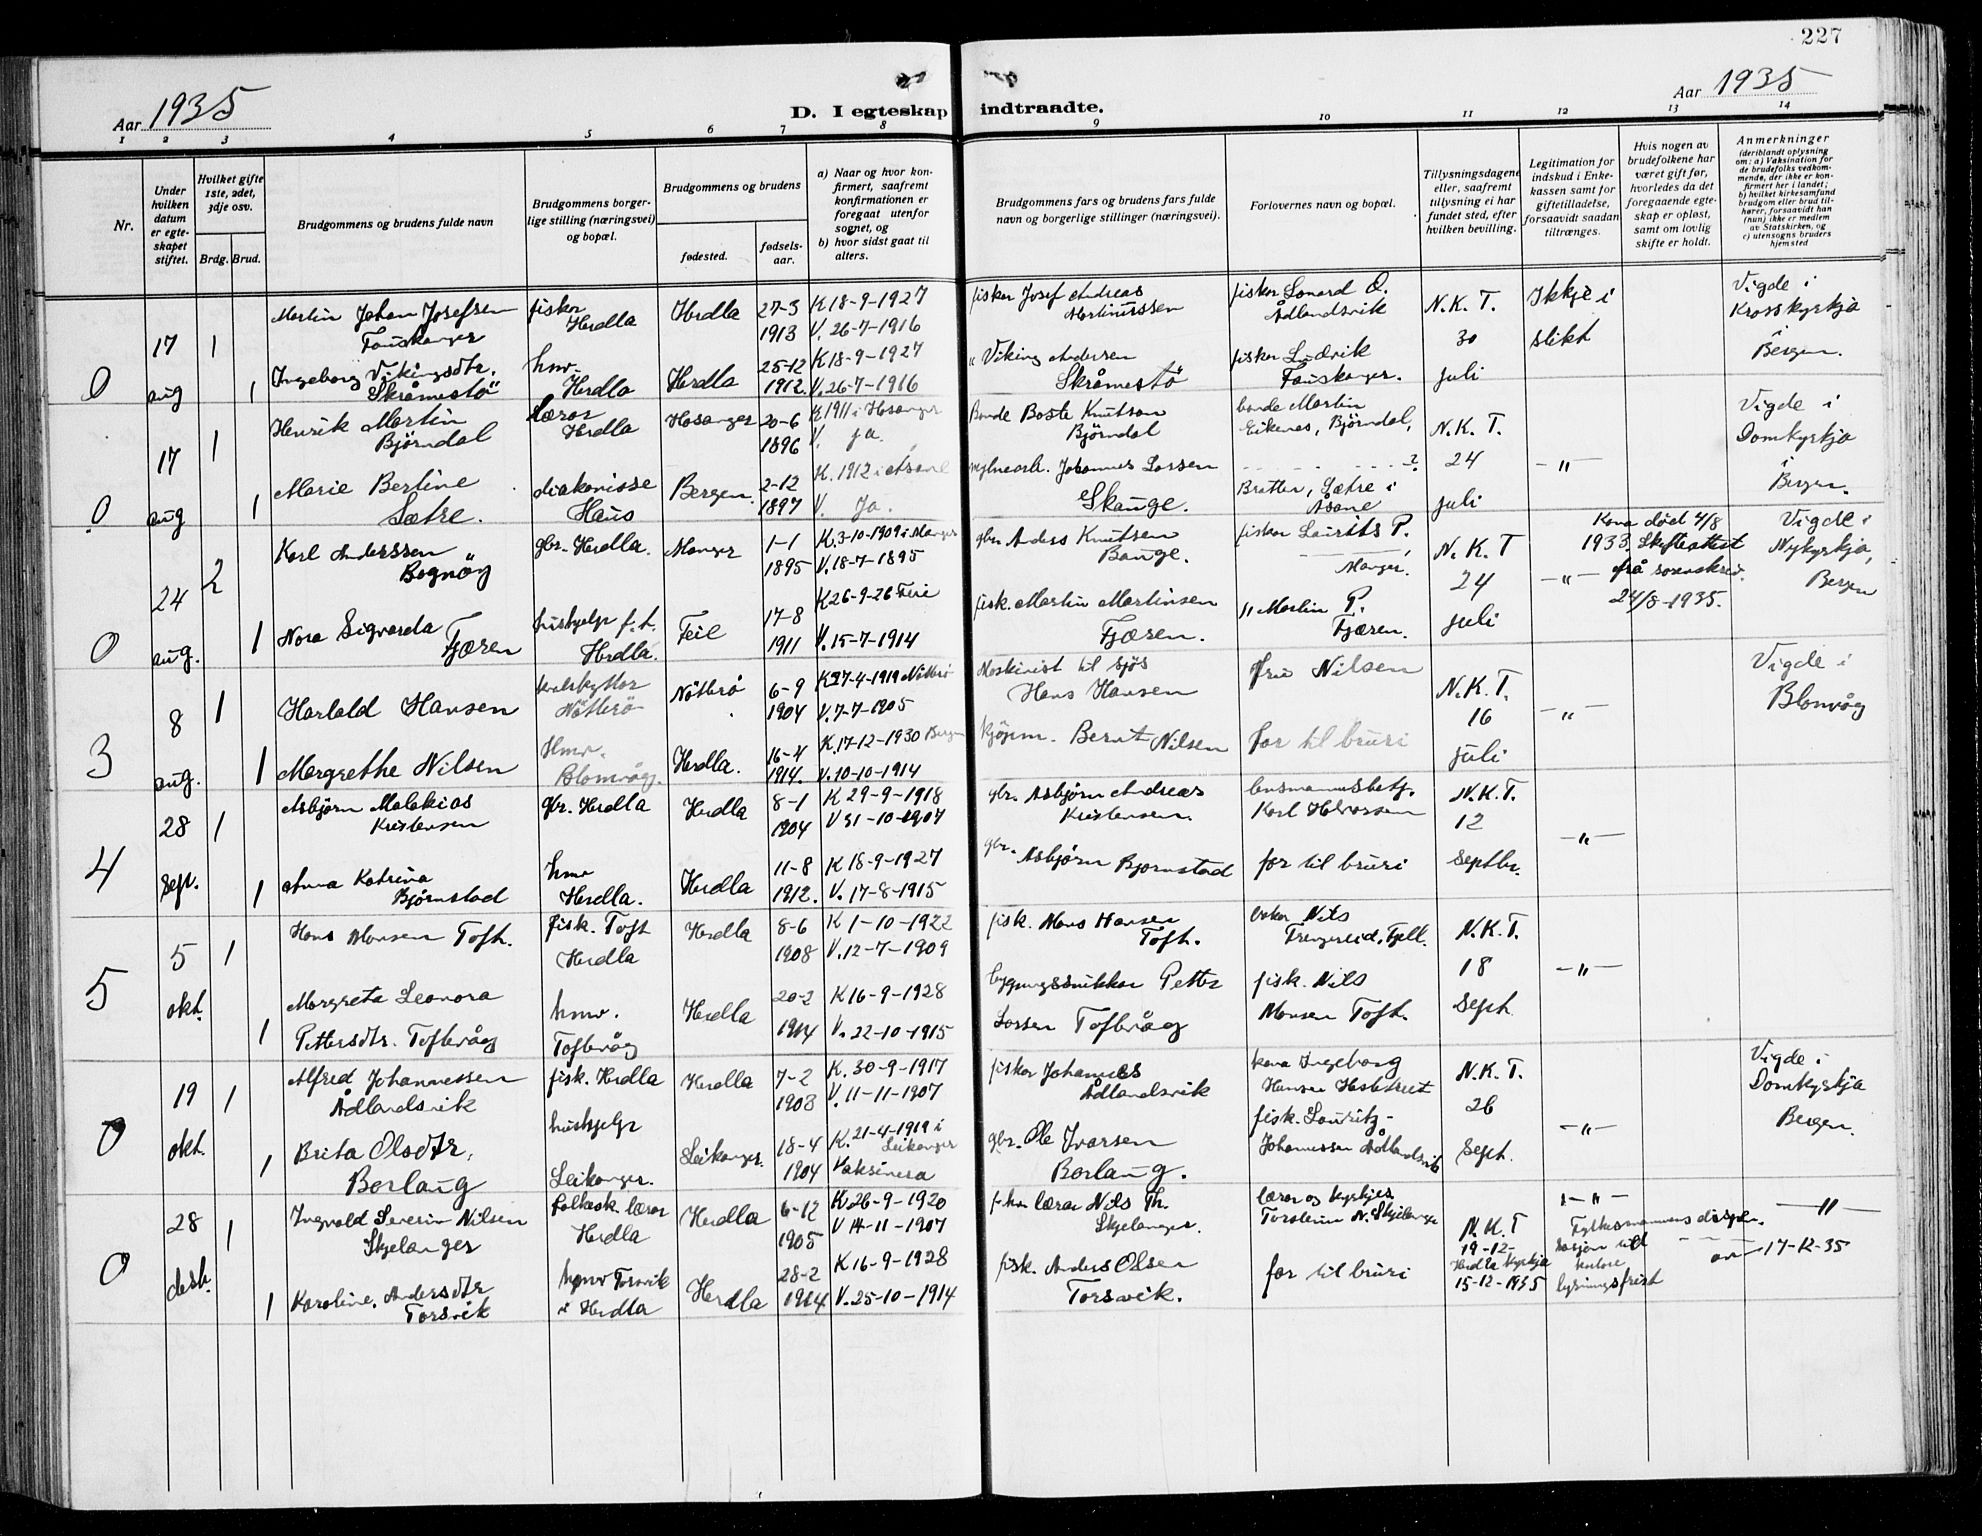 227
Aar 1935
D. I egteskap indtraadte.
Aar 1935
1 2 3 4 5 6 7 8 9 10 11 12 13 14
Nr.
Under hvilken datum er egteskapet stiftet.
Hvilket gifte 1ste, 2det, 3dje osv.
Brdg. Brud.
Brudgommens og brudens fulde navn
Brudgommens borgerlige stilling (næringsvei) og bopæl.
Brudgommens og brudens
fødested.
fødselsaar.
a) Naar og hvor konfirmert, saafremt konfirmationen er foregaat utenfor sognet, og
b) hvor sidst gaat til alters.
Brudgommens fars og brudens fars fulde navn og borgerlige stillinger (næringsvei).
Forlovernes navn og bopæl.
Tillysningsdagene eller, saafremt tillysning ei har fundet sted, efter hvilken bevilling.
Legitimation for indskud i Enkekassen samt for giftetilladelse, forsaavidt saadan tiltrænges.
Hvis nogen av brudefolkene har været gift før, hvorledes da det foregaaende egteskap er opløst, samt om lovlig skifte er holdt.
Anmerkninger
(deriblandt oplysning om: a) Vaksination for de brudefolks vedkommende, der ikke er konfirmert her i landet; b) hvilket kirkesamfund brudgom eller brud tilhører, forsaavidt han (hun) ikke er medlem av Statskirken, og c) utensogns bruders hjemsted
0 17 aug 1 Martin Johan Josefsen Fauskanger fisker Herdla Herdla 27-3 1913 K 18-9-1927 V. 26-7-1916 fisker Josef Andreas Martinussen fisker Lonard O. Ådlandsvik N. K. T. 30 juli Ikkje i slikt Vigde i Krosskyrkja i Bergen.
1 Ingeborg Vikingsdtr. Skråmestö hmv. Herdla Herdla 25-12 1912. K 18-9-1927 V. 26-7-1916 " Viking Andersen Skråmestö fisker Ludvik Fauskanger.
0 17 aug 1 Henrik Martin Björndal Lærar Herdla Hosanger 20-6 1896 K. 1911 i Hosanger V. ja. Bonde Boste Knutson Björndal bonde Martin Eikenes, Björndal, N. K. T. 24 juli -"- Vigde i Domkyrkja i Bergen.
1 Marie Berline Sætre. diakonisse Haus Bergen. 2-12 1897 K. 1912 i Åsane V. Ja. Johannes Larsen Skauge. ? Bratten, Sætre i Åsane
0 24 aug. 2 Karl Anderssen Bognöy gbr. Herdla. Manger 1-1 1895 K. 3-10-1909 i Manger V. 18-7-1895 gbr. Anders Knutsen Bauge. fisker Laurits P. Manger. N. K. T 24 juli -"- Kona död 4/8 1933. Skifteattest frå sorenskriv. 24/8-1935. Vigde i Nykyrkja, Bergen
1 Nora Sigvarda Fjæren hushjelp f. t. Herdla. Feie 17-8 1911 K 26-9-26 Feie V. 15-7-1914 fisk. Martin Martinsen Fjæren. " Martin P. Fjæren.
3 8 aug. 1 Harald Hansen kvalskyttar Nötterö Nötterö 6-9 1904 K 27-4-1919 Nötterö V. 7-7-1905 Maskinist til sjös Hans Hansen fru Nilsen N. K. T. 16 juli -"- Vigde i Blomvåg
1 Margrethe Nilsen Hmv. Blomvåg. Herdla. 16-4 1914. K. 17-12-1930 Bergen V. 10-10-1914 kjöpm. Bernt Nilsen far til bruri
4 28 sept. 1 Asbjørn Malakias Kristensen gbr. Herdla Herdla 8-1 1904 K 29-9-1918 V 31-10-1907 gbr. Asbjørn Andreas Kristensen. lensmannsbetj. Karl Halvorssen N. K. T. 12 Septbr. -"-
1 Anna Katrina Bjørnstad hmv Herdla. Herdla 11-8 1912. K 18-9-1927 V. 17-8-1915 gbr. Asbjørn Bjornstad far til bruri
5 5 okt. 1 Hans Monsen Toft. fisk. Toft Herdla Herdla 8-6 1908 K 1-10-1922 V. 12-7-1909 fisk. Mons Hansen Toft. Nils Trengereid, Fjell. N. K. T. 18 Sept. -"-
1 Margreta Leonora Pettersdtr. Toftevåg hmv. Toftevåg Herdla 20-2 1914 K 16-9-1928 V. 22-10-1915 bygningssnikkar Petter Larsen Toftevåg fisk. Nils Monsen Toft.
0 19 okt. 1 Alfred Johannessen Ådlandsvik fisk. Herdla Herdla 7-2 1903 K. 30-9-1917 V. 11-11-1907 fisker Johannes Ådlandsvik kona Ingeborg Hansen N. K. T. 26 Sept. -"- Vigde i Domkyrkja Bergen.
1 Brita Olsdtr. Borlaug hushjelp Leikanger. Leikanger. 18-4 1904 K. 21-4-1919 i Leikanger Vaksinera gbr. Ole Ivarsen Borlaug. fisk. Lauritz Johannessen Ådlandsvik
0 28 desb. 1 Ingvald Severin Nilsen Skjelanger folkesk. lærar Herdla Herdla 6-12 1905 K 26-9-1920 V 14-11-1907 lærar Nils Th. Skjelanger. lærar og kyrkjes. Torstein N. Skjelanger N. K. T 19-12- Herdla kyrkja 15-12-1935 -"- Fylkesmannens dispensasjon til kortare lysningsfrist av 17-12-35 -"-
1 Karoline Andersdtr Torsvik hmv Torsvik i Herdla Herdla 28-2 1914 K 16-9-1928 V. 25-10-1914 fisk. Anders Olsen Torsvik. far til bruri